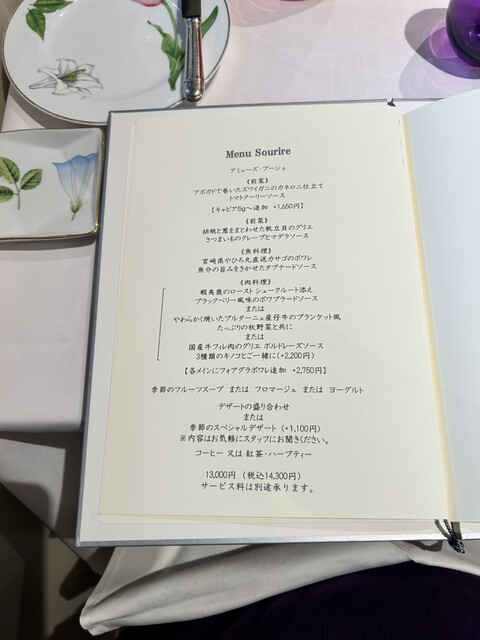 Menu Sourire
アミューズ・ブーシュ
《前菜》
アボカドで巻いたズワイガニのカネロニ仕立て
トマトクーリーソース
【キャビア5g〜追加 +1,650円】
《前菜》
胡桃と葱をまとわせた帆立貝のグリエ
さつまいものクレープとマデラソース
《魚料理》
宮崎県やひろ丸直送カサゴのポワレ
魚介の旨みをきかせたタプナードソース
《肉料理》
蝦夷鹿のロースト シュークルート添え
ブラックベリー風味のポワブラードソース
または
やわらかく焼いたブルターニュ産仔牛のブランケット風
たっぷりの秋野菜と共に
または
国産牛フィレ肉のグリエ ボルドレーズソース
3種類のキノコとご一緒に(+2,200円)
【各メインにフォアグラポワレ追加 +2,750円】
季節のフルーツスープ または フロマージュ または ヨーグルト
デザートの盛り合わせ
または
季節のスペシャルデザート (+1,100円)
※内容はお気軽にスタッフにお聞きください。
コーヒー 又は 紅茶・ハーブティー
13,000円 (税込14,300円)
サービス料は別途承ります。